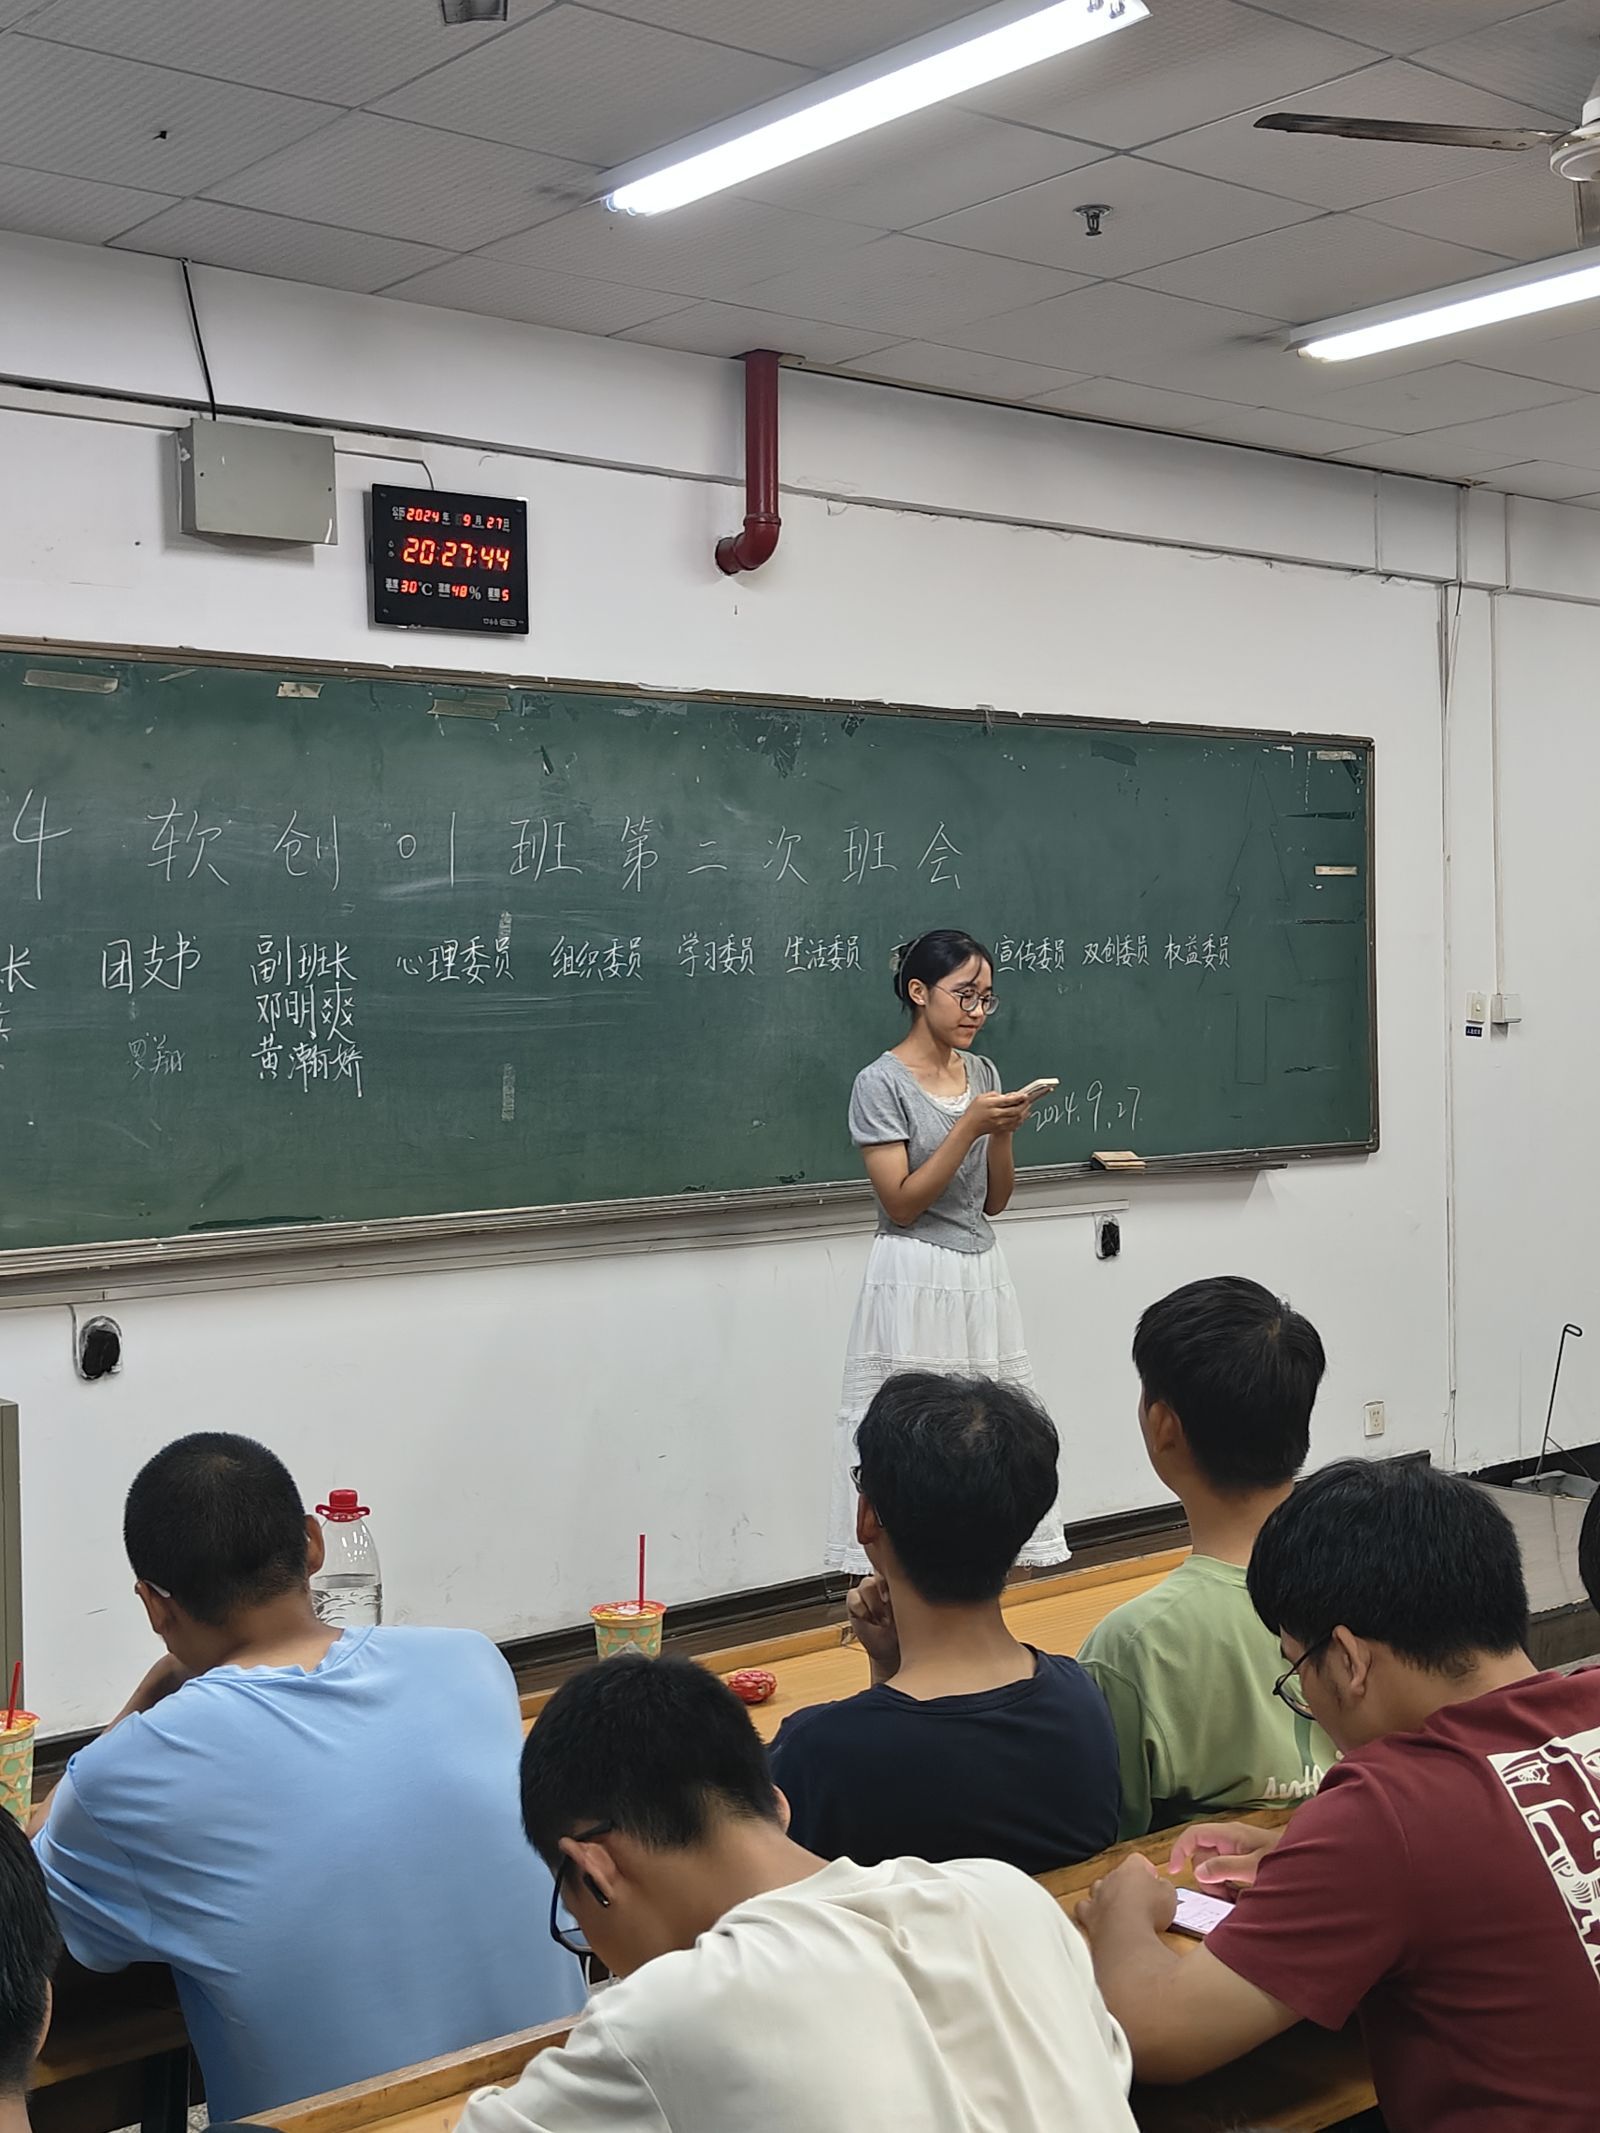 公历 2024年 9月27日
20:27:44
温度30℃ 湿度40% 星期5
4 软创01班第二次班会
长 团支书 副班长 心理委员 组织委员 学习委员 生活委员 宣传委员 双创委员 权益委员
邓明爽
罗翔 黄瀚娇
2024.9.27